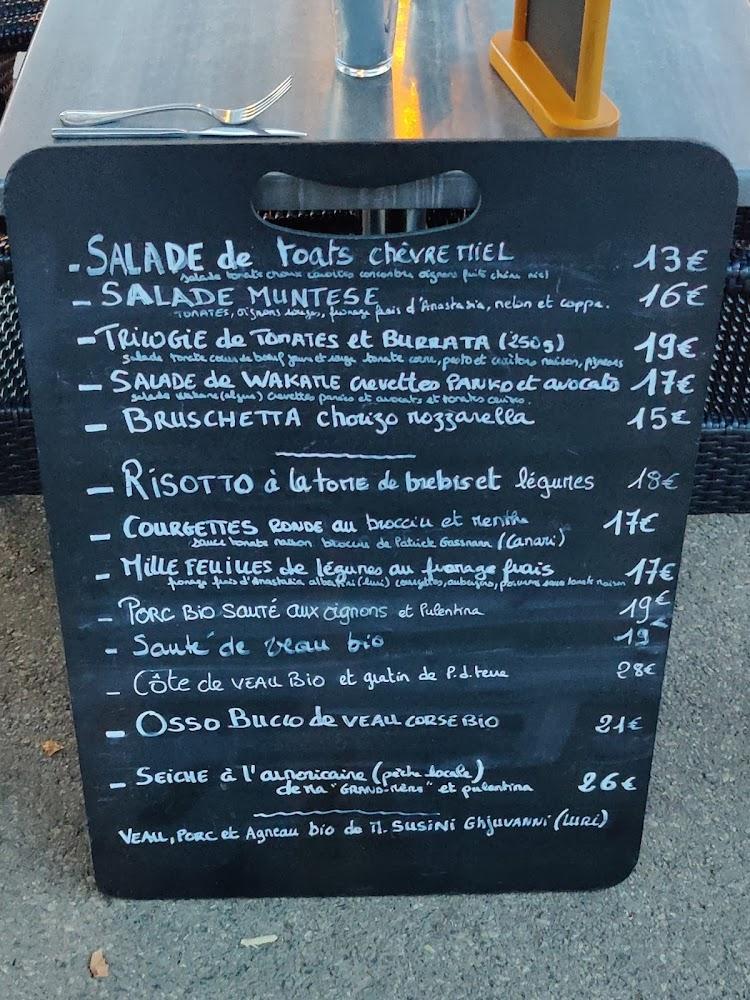 - SALADE de toats chèvre miel 13€
salade tomate choux carottes concombre oignons fruits chèvre miel
- SALADE MUNTESE 16€
TOMATES, oignons rouges, fromage frais d'Anastasia, melon et coppa.
- TRILOGIE de TOMATES et BURRATA (250g) 19€
salade tomate coeur de boeuf jaune et rouge tomate corne, pesto et maison, pignons
- SALADE de WAKAME crevettes PANKO et avocats 17€
salade wakame (algue) crevettes panées et avocats et tomates cerises.
- BRUSCHETTA chorizo mozzarella 15€
- RISOTTO à la tome de brebis et légumes 18€
- COURGETTES RONDE au brocciu et menthe 17€
sauce tomate maison brocciu de Patrick Gassmann (Canari)
- MILLE FEUILLES de légumes au fromage frais 17€
fromage frais d'Anastasia albertini (luri) courgettes, aubergines, poivrons sauce tomate maison
- PORC BIO SAUTÉ aux oignons et Pulentina 19€
- Sauté de veau bio 19€
- Côte de VEAU BIO et gratin de P.d.terre 28€
- OSSO BUCCO de VEAU CORSE BIO 21€
- SEICHE à l'armoricaine (pêche locale)
de ma "GRAND-mère" et pulentina 26€
VEAU, PORC et Agneau bio de M. SUSINI Ghjuvanni (LURI)